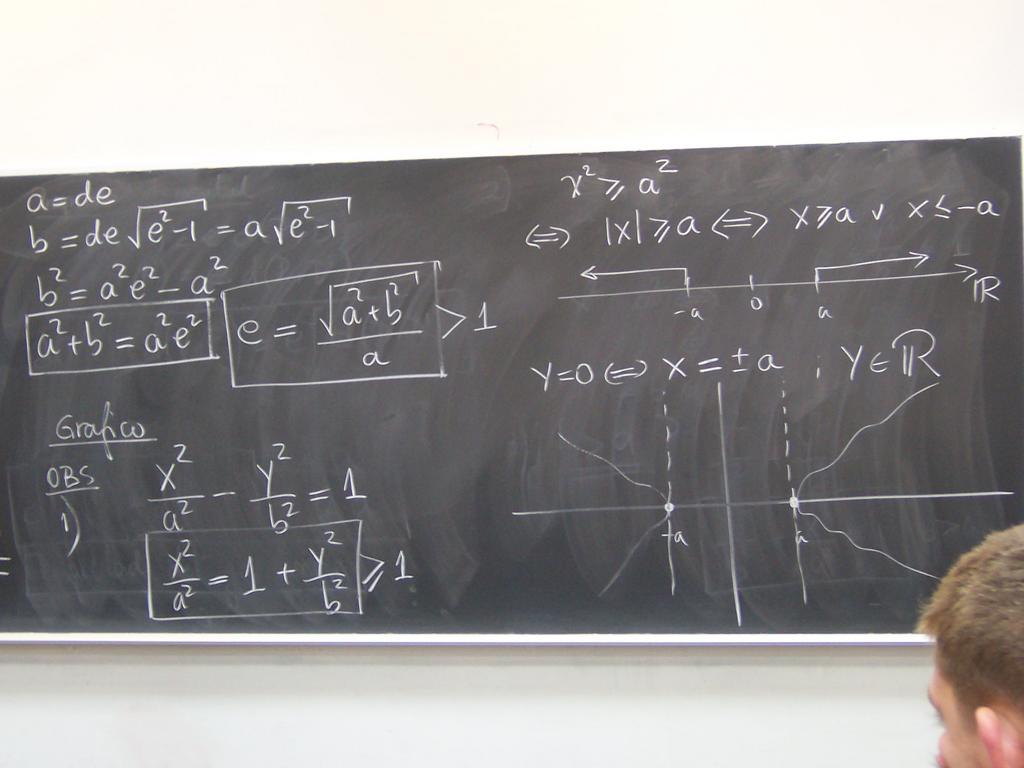 a = de
b = de √(e²-1) = a √(e²-1)
b² = a²e² - a²
a² + b² = a²e²
e = √(a² + b²) / a > 1
Grafico
OBS
1)
x²/a² - y²/b² = 1
x²/a² = 1 + y²/b² ⩾ 1
=
x² ⩾ a²
⇔ |x| ⩾ a ⇔ x ⩾ a ∨ x ≤ -a
-a 0 a ℝ
y = 0 ⇔ x = ± a ; y ∈ ℝ
-a a